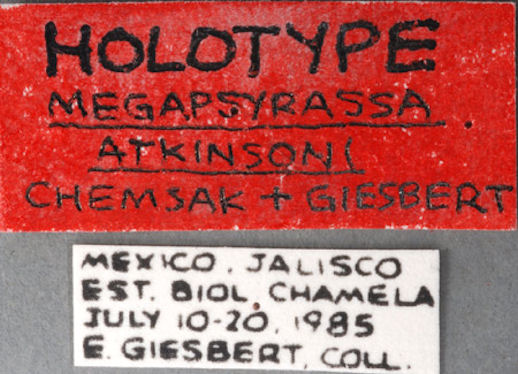 HOLOTYPE
MEGAPSYRASSA
ATKINSONI
CHEMSAK + GIESBERT
MEXICO. JALISCO
EST. BIOL. CHAMELA
JULY 10-20, 1985
E. GIESBERT, COLL.